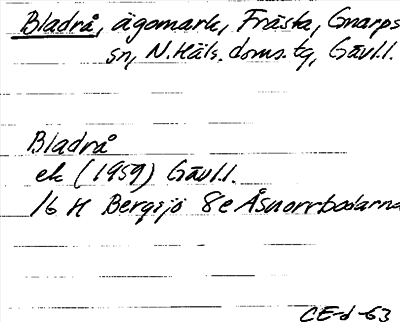 Bladrå, ägomark, Frästa, Gnarps
sn, N. Häls. doms. tg, Gävl.l.
Bladrå
ek (1959) Gävl.l.
16 H Bergsjö 8e Åsnorrbodarna
CE-d-63